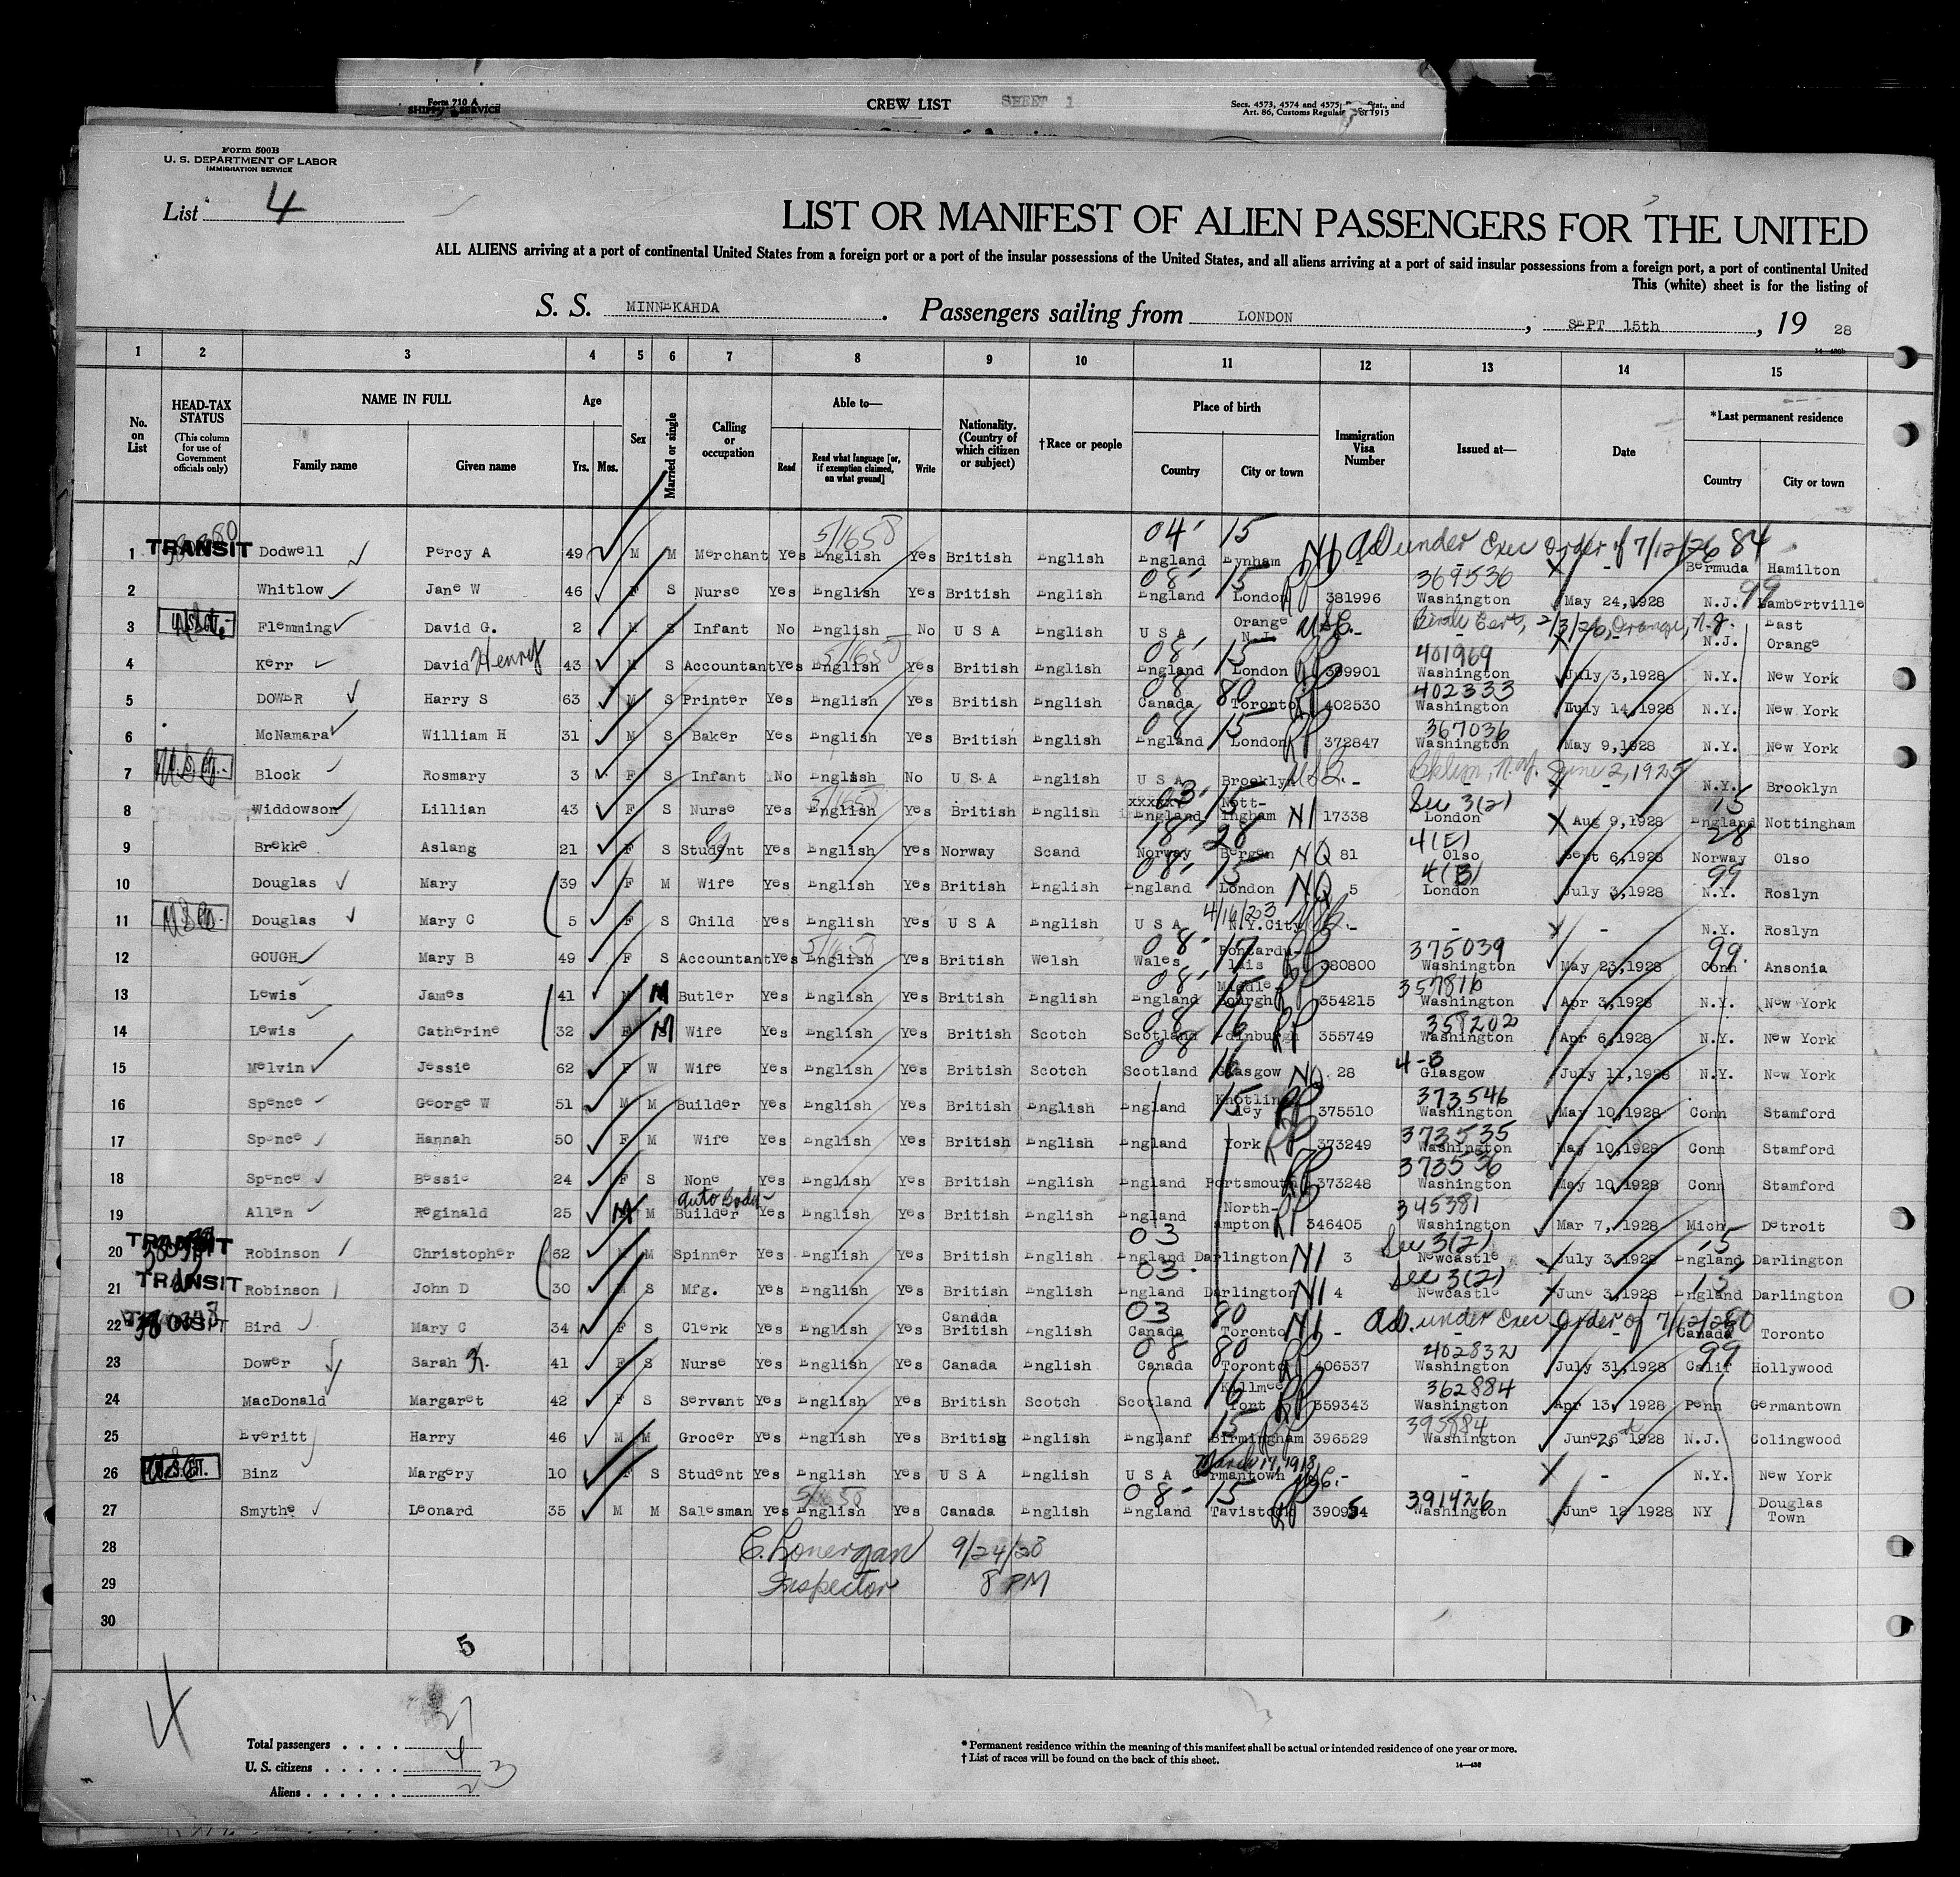 Form 710 A
SHIPP'G SERVICE
CREW LIST
SHEET 1
Secs. 4573, 4574 and 4575, Stat., and
Art. 86, Customs Regulat of 1915
Form 500B
U. S. DEPARTMENT OF LABOR
IMMIGRATION SERVICE
List 4
LIST OR MANIFEST OF ALIEN PASSENGERS FOR THE UNITED
ALL ALIENS arriving at a port of continental United States from a foreign port or a port of the insular possessions of the United States, and all aliens arriving at a port of said insular possessions from a foreign port, a port of continental United
This (white) sheet is for the listing of
S. S. MINNEKAHDA . Passengers sailing from LONDON , SEPT 15th , 19 28
1 2 3 4 5 6 7 8 9 10 11 12 13 14 15
No. on List
HEAD-TAX STATUS (This column for use of Government officials only)
NAME IN FULL
Family name Given name
Age
Yrs. Mos.
Sex
Married or single
Calling or occupation
Able to—
Read Read what language [or, if exemption claimed, on what ground] Write
Nationality. (Country of which citizen or subject)
†Race or people
Place of birth
Country City or town
Immigration Visa Number
Issued at—
Date
*Last permanent residence
Country City or town
5/1658 04' 15
1 TRANSIT Dodwell Percy A 49 M M Merchant Yes English Yes British English England Lynham NI ad under Exec Order of 7/12/26 84 Bermuda Hamilton
08' 15 369536 99
2 Whitlow Jane W 46 F S Nurse Yes English Yes British English England London 381996 Washington May 24,1928 N.J. Lambertville
3 Flemming David G. 2 M S Infant No English No U S A English U S A Orange N.J. Birth Cert, 2/3/26, Orange, N.J. N.J. East Orange
08' 15 401969
4 Kerr David Henry 43 M S Accountant Yes English Yes British English England London 399901 Washington July 3,1928 N.Y. New York
08 80 402333
5 DOWER Harry S 63 M S Printer Yes English Yes British English Canada Toronto 402530 Washington July 14,1928 N.Y. New York
08 15 367036
6 McNamara William H 31 M S Baker Yes English Yes British English England London 372847 Washington May 9,1928 N.Y. New York
7 Block Rosmary 3 F S Infant No English No U S A English U S A Brooklyn - Bklyn, N.Y. June 2, 1925 N.Y. Brooklyn
5/1658 03' 15 Sec 3(2) 15
8 Widdowson Lillian 43 F S Nurse Yes English Yes British English England Nott-ingham NI 17338 London Aug 9,1928 England Nottingham
18' 28 4(E) 28
9 Brekke Aslang 21 F S Student Yes English Yes Norway Scand Norway Bergen NQ 81 Olso Sept 6,1928 Norway Olso
08' 15 4(B) 99
10 Douglas Mary 39 F M Wife Yes English Yes British English England London NQ 5 London July 3,1928 N.Y. Roslyn
4/16/23
11 Douglas Mary C 5 F S Child Yes English Yes U S A English U S A N.Y.City - - - N.Y. Roslyn
5/1658 08' 17 375039 99
12 GOUGH Mary B 49 F S Accountant Yes English Yes British Welsh Wales Pontardu-lais 380800 Washington May 23,1928 Conn Ansonia
08' 15 357816
13 Lewis James 41 M M Butler Yes English Yes British English England Middle Bourgh 354215 Washington Apr 3,1928 N.Y. New York
08 16 358202
14 Lewis Catherine 32 F M Wife Yes English Yes British Scotch Scotland Edinburgh 355749 Washington Apr 6,1928 N.Y. New York
08 16 4-B
15 Melvin Jessie 62 F W Wife Yes English Yes British Scotch Scotland Glasgow NQ 28 Glasgow July 11,1928 N.Y. New York
15 373546
16 Spence George W 51 M M Builder Yes English Yes British English England Knotlin ley 375510 Washington May 10,1928 Conn Stamford
373535
17 Spence Hannah 50 F M Wife Yes English Yes British English England York 373249 Washington May 10,1928 Conn Stamford
373536
18 Spence Bessie 24 F S None Yes English Yes British English England Portsmouth 373248 Washington May 10,1928 Conn Stamford
auto Body- 345381
19 Allen Reginald 25 M M Builder Yes English Yes British English England North-ampton 346405 Washington Mar 7,1928 Mich Detroit
03 Sec 3(2) 15
20 TRANSIT Robinson Christopher 62 M M Spinner Yes English Yes British English England Darlington NI 3 Newcastle July 3,1928 England Darlington
03 Sec 3(2) 15
21 TRANSIT Robinson John D 30 M S Mfg. Yes English Yes British English England Darlington NI 4 Newcastle June 3,1928 England Darlington
03 80
22 TRANSIT Bird Mary C 34 F S Clerk Yes English Yes Canada British English Canada Toronto NI - ad. under Exec Order of 7/12/26 80 Canada Toronto
08 80 402832 99
23 Dower Sarah K. 41 F S Nurse Yes English Yes Canada English Canada Toronto 406537 Washington July 31,1928 Calif Hollywood
16 362884
24 MacDonald Margaret 42 F S Servant Yes English Yes British Scotch Scotland Killmee Fort 359343 Washington Apr 13, 1928 Penn Germantown
15 395884
25 Everitt Harry 46 M M Grocer Yes English Yes British English Englanf Birmingham 396529 Washington June 26 1928 N.J. Colingwood
March 17, 1918
26 U.S.CIT. Binz Margery 10 F S Student Yes English Yes U S A English U S A Germantown - - - N.Y. New York
5/1658 08- 15 391426
27 Smythe Leonard 35 M M Salesman Yes English Yes Canada English England Tavistock 390954 Washington June 12 1928 NY Douglas Town
28 C. Lonergan 9/24/28
29 Inspector 8 PM
30
5
4
Total passengers . . . . 27
U. S. citizens . . . . . 4
Aliens . . . . . . 23
* Permanent residence within the meaning of this manifest shall be actual or intended residence of one year or more.
† List of races will be found on the back of this sheet.
14—430